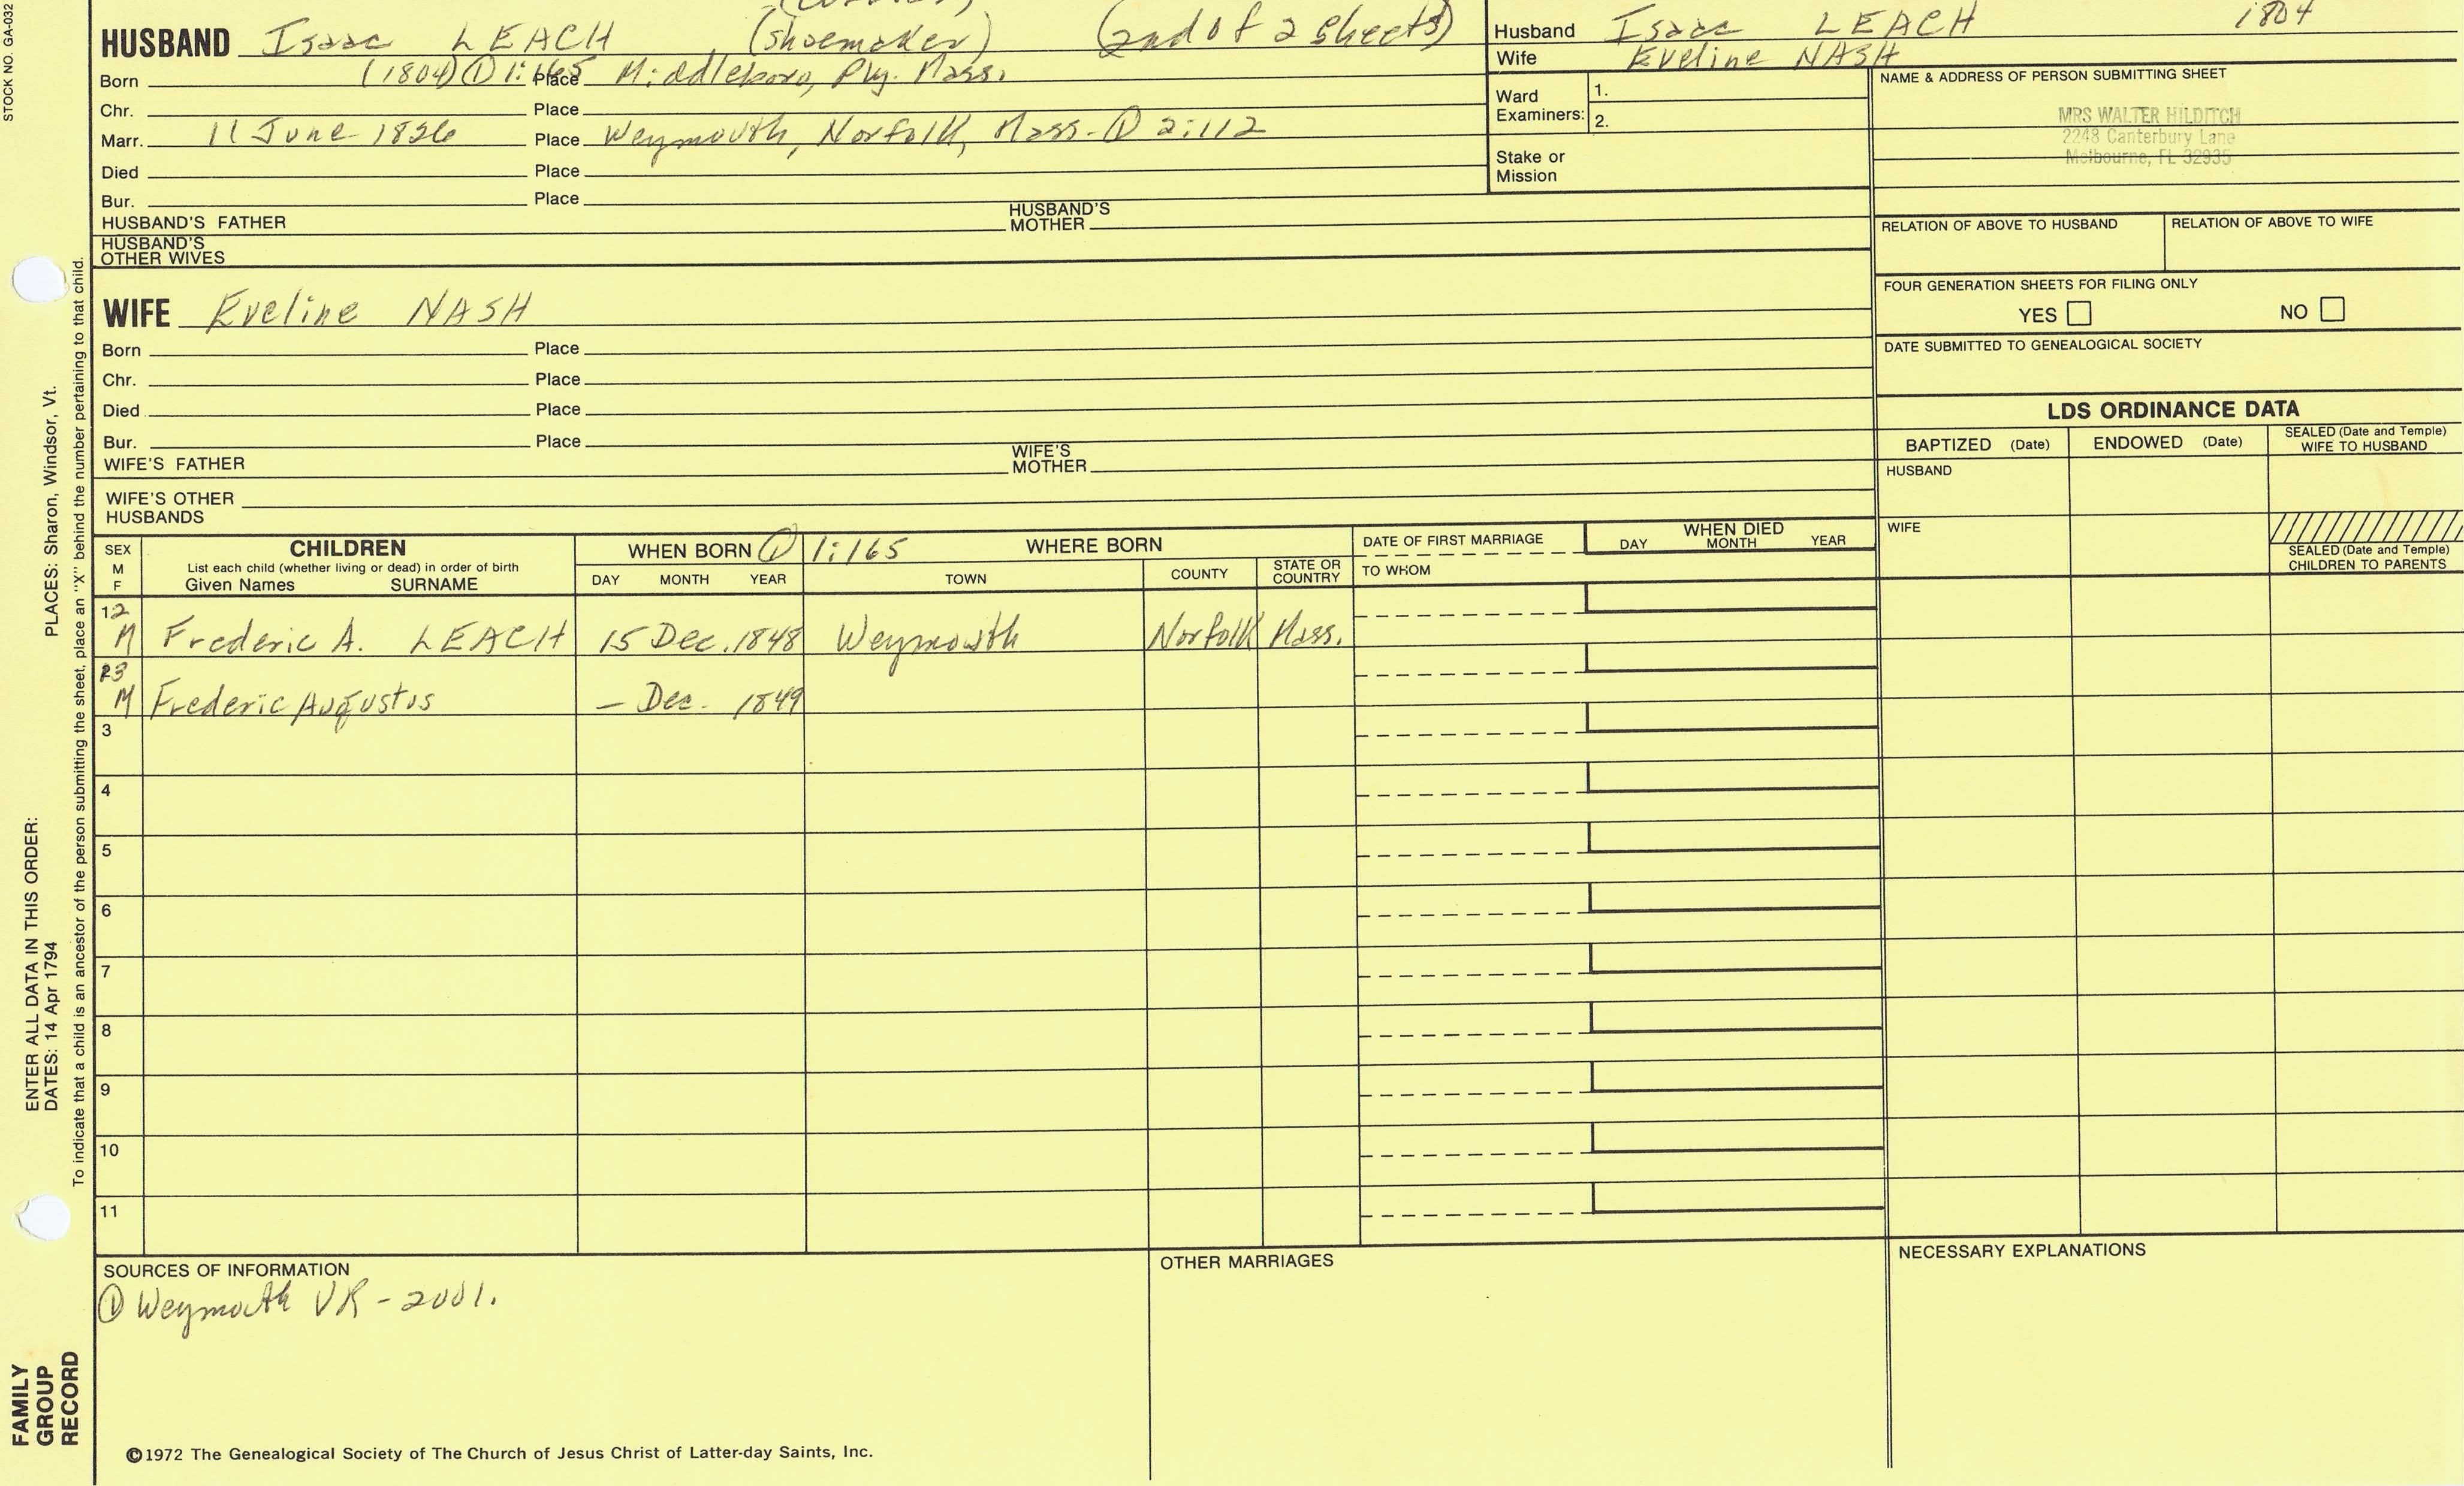 STOCK NO. GA-032
(shoemaker) (2nd of 2 sheets)
HUSBAND Isaac LEACH
Born (1804) ① 1:165 Place Middleboro, Ply. Mass.
Chr. Place
Marr. 11 June 1826 Place Weymouth, Norfolk, Mass. ① 2:112
Died Place
Bur. Place
HUSBAND'S FATHER HUSBAND'S MOTHER
HUSBAND'S OTHER WIVES
Husband Isaac LEACH 1804
Wife Eveline NASH
Ward Examiners: 1.
2.
Stake or Mission
NAME & ADDRESS OF PERSON SUBMITTING SHEET
MRS WALTER HILDITCH
2248 Canterbury Lane
Melbourne, FL 32935
RELATION OF ABOVE TO HUSBAND RELATION OF ABOVE TO WIFE
FOUR GENERATION SHEETS FOR FILING ONLY
YES NO
DATE SUBMITTED TO GENEALOGICAL SOCIETY
WIFE Eveline NASH
Born Place
Chr. Place
Died Place
Bur. Place
WIFE'S FATHER WIFE'S MOTHER
WIFE'S OTHER HUSBANDS
LDS ORDINANCE DATA
BAPTIZED (Date) ENDOWED (Date) SEALED (Date and Temple) WIFE TO HUSBAND
HUSBAND
WIFE
SEALED (Date and Temple) CHILDREN TO PARENTS
SEX M F CHILDREN
List each child (whether living or dead) in order of birth
Given Names SURNAME
WHEN BORN ① 1:165 WHERE BORN
DAY MONTH YEAR TOWN COUNTY STATE OR COUNTRY
DATE OF FIRST MARRIAGE
TO WHOM
WHEN DIED
DAY MONTH YEAR
12 M Frederic A. LEACH 15 Dec. 1848 Weymouth Norfolk Mass.
13 M Frederic Augustus – Dec. 1849
3
4
5
6
7
8
9
10
11
SOURCES OF INFORMATION
① Weymouth VR – 2001.
OTHER MARRIAGES
NECESSARY EXPLANATIONS
©1972 The Genealogical Society of The Church of Jesus Christ of Latter-day Saints, Inc.
FAMILY GROUP RECORD
ENTER ALL DATA IN THIS ORDER:
DATES: 14 Apr 1794
PLACES: Sharon, Windsor, Vt.
To indicate that a child is an ancestor of the person submitting the sheet, place an "X" behind the number pertaining to that child.